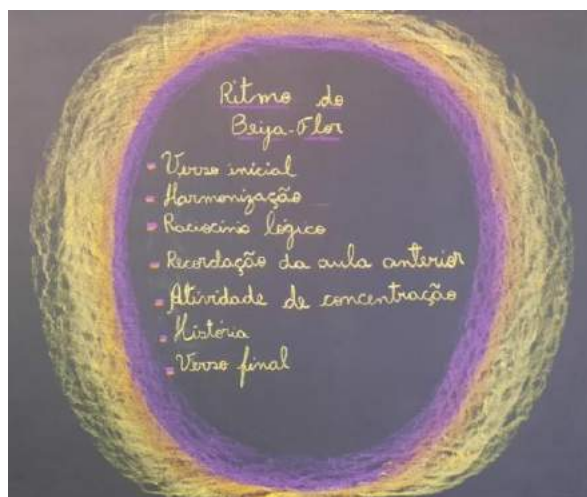 Ritmo do
Beija-Flor
Verso inicial
Harmonização
Raciocínio lógico
Recordação da aula anterior
Atividade de concentração
História
Verso final